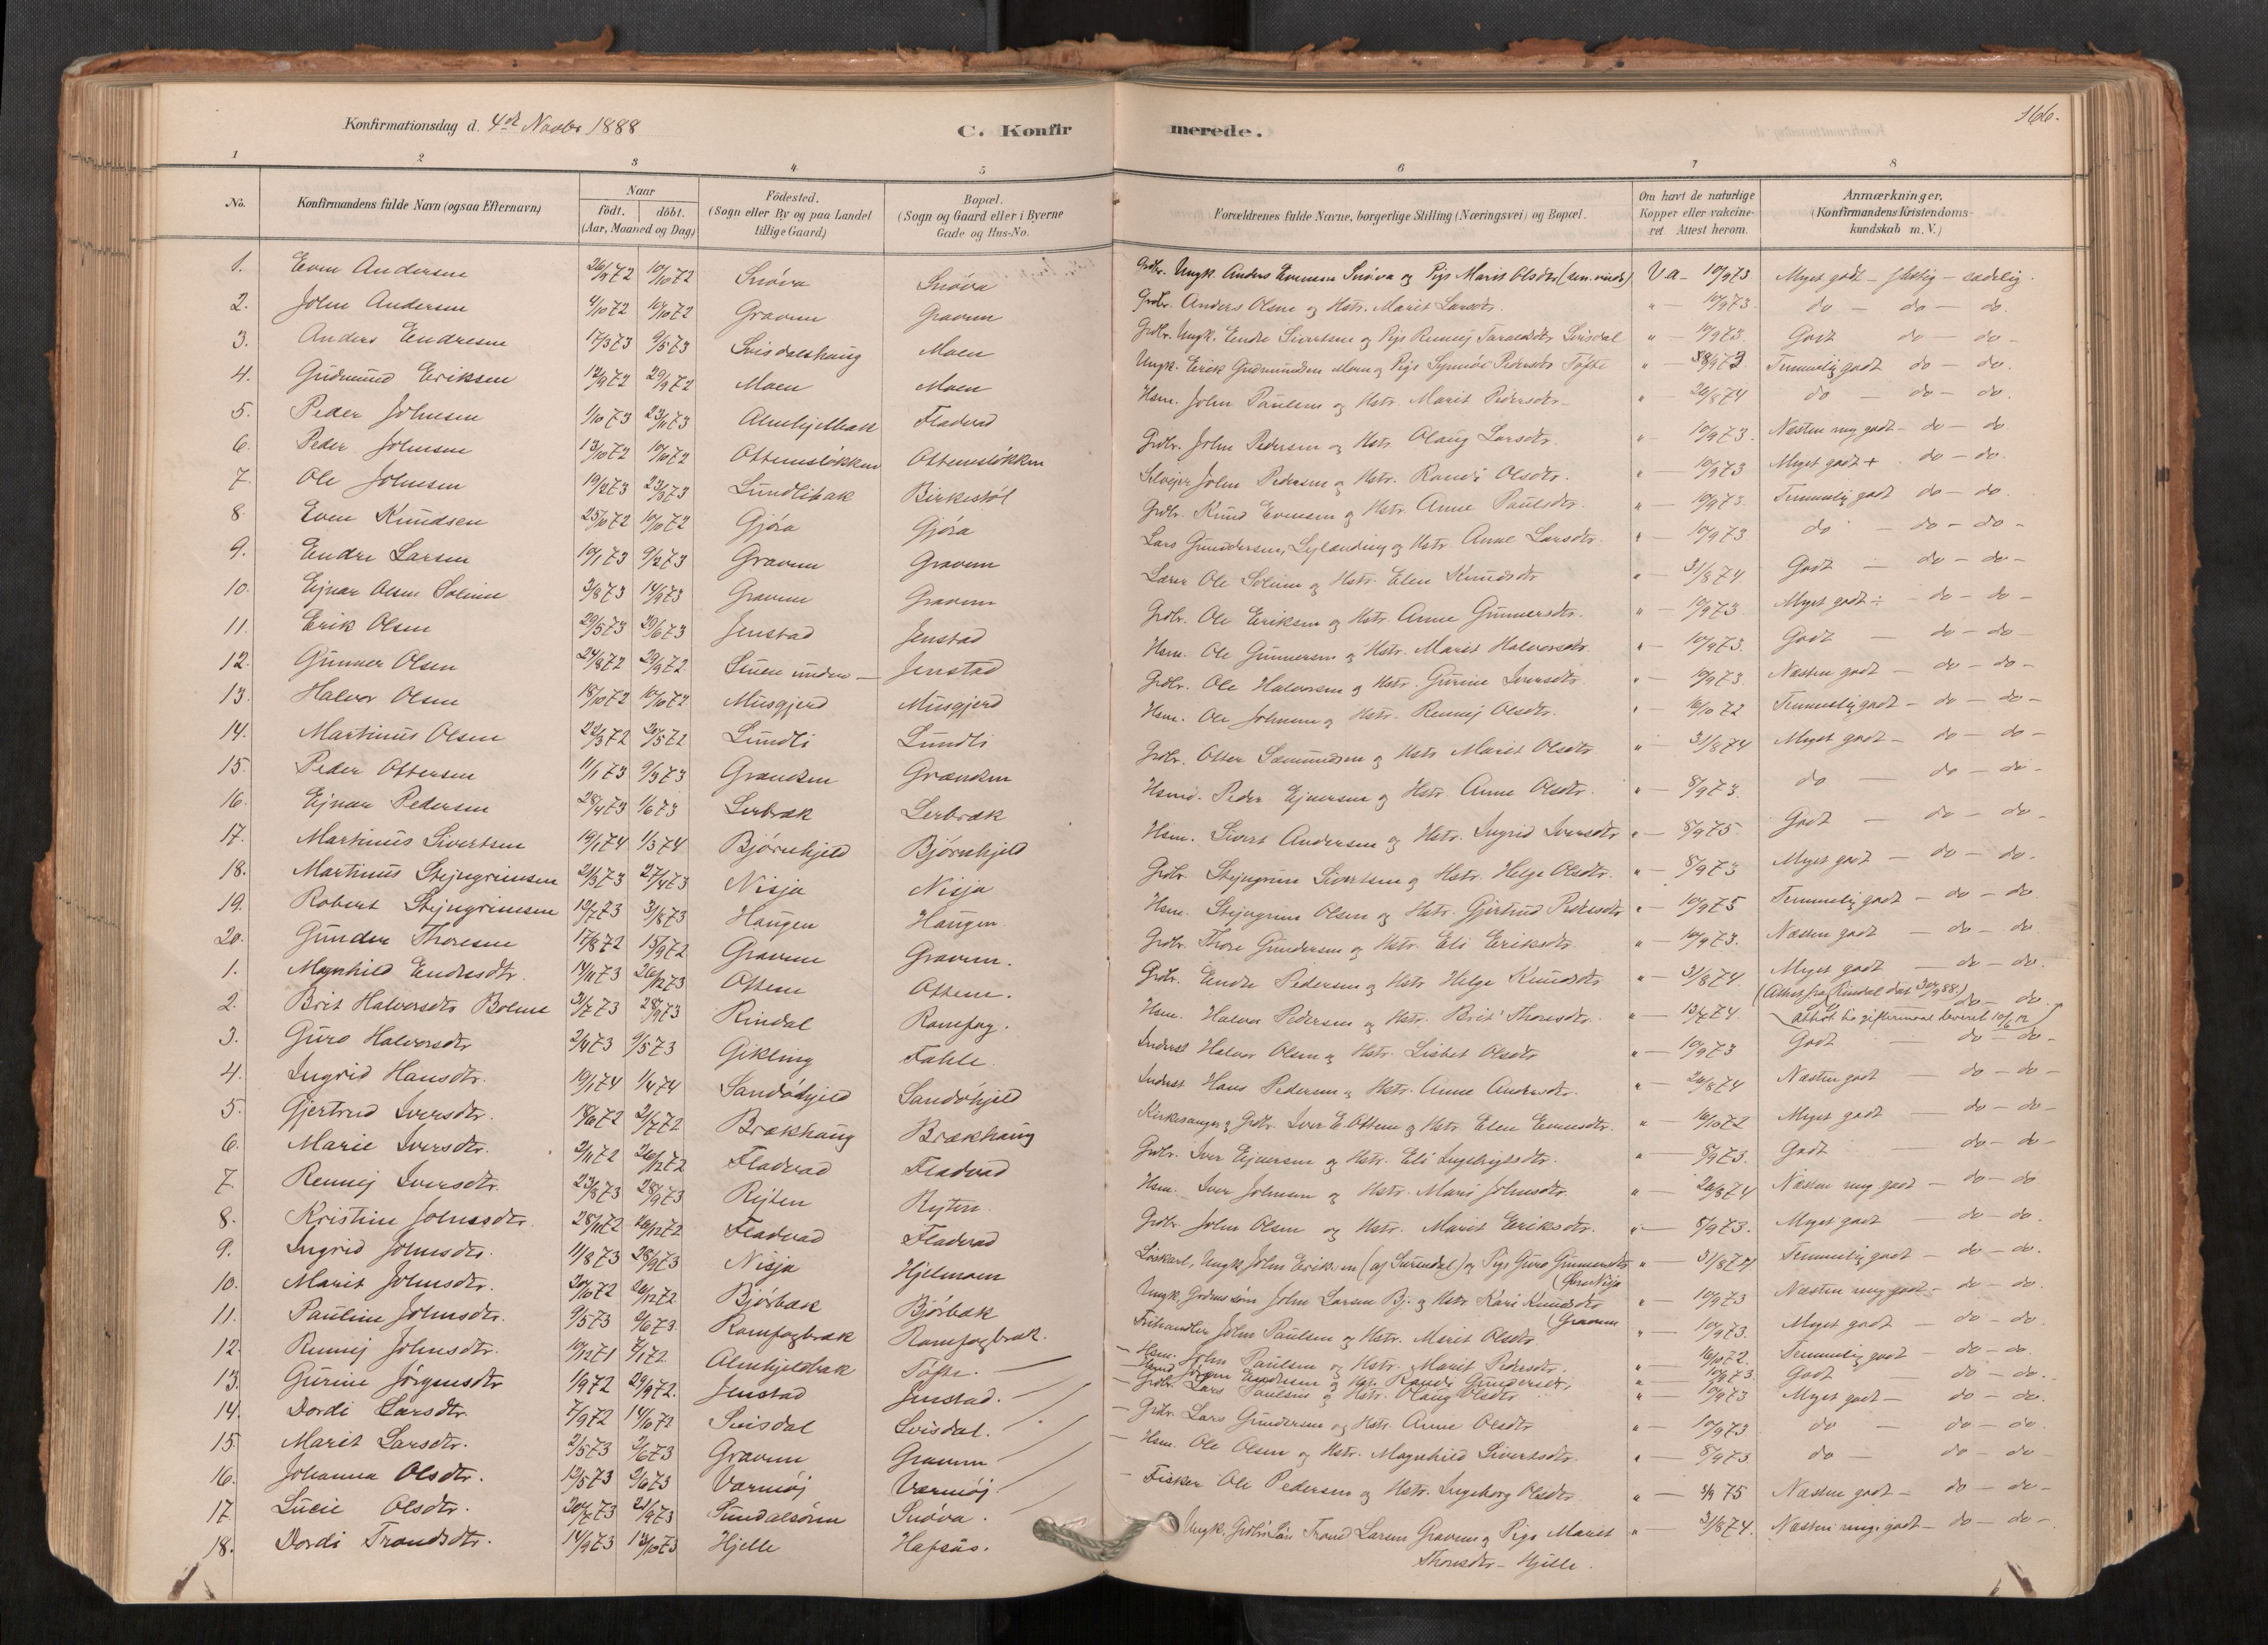 Konfirmationsdag d. 4de Novbr 1888 C. Konfirmerede. 166.
1 2 3 4 5 6 7 8
No. Konfirmandens fulde Navn (ogsaa Efternavn) Naar födt. döbt. (Aar, Maaned og Dag) Födested. (Sogn eller By og paa Landet tillige Gaard) Bopæl. (Sogn og Gaard eller i Byerne Gade og Hus-No. Forældrenes fulde Navne, borgerlige Stilling (Næringsvei) og Bopæl. Om havt de naturlige Kopper eller vakcineret. Attest herom. Anmærkninger. (Konfirmandens Kristendomskundskab m. V.)
1. Even Andersen 26/9 72 10/10 72 Snöva Snöva Grdbr. Ungk. Anders Evensen Snöva og Pige Marit Olsdtr Va - 10/9 73 Meget godt - flittig - sædelig
2. John Andersen 4/10 72 10/10 72 Gravem Gravem Grdbr. Anders Olsen og Hstr. Marit Larsdtr. " - 10/9 73. do - do - do
3. Anders Endresen 17/3 73 9/5 73 Svisdalshaug Moen Grdbr. Ungk. Endre Sivertsen og Pige Rennej Svisdal " - 10/9 73. Godt do - do -
4. Gudmund Eriksen 12/9 72 29/9 72 Moen Moen Ungk. Erik Gudmundsen Moen og Pige Synnöve Pedersdtr Töfte " - 8/9 73 Temmelig godt do - do.
5. Peder Johnsen 1/10 73 23/11 73 Almhjellbak Fladvad Hsm. John Paulsen og Hstr. Marit Pedersdtr - " - 20/8 74 do - do - do.
6. Peder Johnsen 13/10 72 10/10 72 Ottemslökken Ottemslökken Grdbr. John Pedersen og Hstr. Olaug Larsdtr. " - 10/9 73. Næsten meg. godt - do - do
7. Ole Johnsen 19/2 73 23/3 73 Lundlibak Birkestöl Selvejer John Pedersen og Hstr. Randi Olsdtr. " - 10/9 73 Meget godt + do - do.
8. Even Knudsen 25/10 72 10/10 72 Gjöra Gjöra Grdbr. Knud Evensen og Hstr. Anne Paulsdtr. " - 10/9 73. Temmelig godt do - do.
9. Endre Larsen 10/1 73 9/2 73 Gravem Gravem Lars Gundersen, og Hstr. Anne Larsdtr. " - 10/9 73 do - do - do -
10. Ejnar Olsen Solem 3/8 73 14/9 73 Gravem Gravem Lærer Ole Solem og Hstr. Elen Knudsdtr " - 31/8 74 Godt - do - do -
11. Erik Olsen 29/5 73 29/6 73 Jenstad Jenstad Grdbr. Ole Eriksen og Hstr. Anne Gunnersdtr. " - 10/9 73. Meget godt ÷ - do - do -
12. Gunner Olsen 24/8 72 29/9 72 Snuen under - Jenstad Hsm. Ole Gunnersen og Hstr. Marit Halvorsdtr. " - 10/9 73. Godt - do - do -
13. Halvor Olsen 18/10 72 10/10 72 Musgjerd Musgjerd Grdbr. Ole Halvorsen og Hstr. Gurine Iversdtr " - 10/9 73. Næsten godt - do - do -
14. Martinus Olsen 22/3 72 20/5 72 Lundli Lundli Hsm. Ole Johnsen og Hstr. Rennej Olsdtr. " - 16/10 72 Temmelig godt - do - do -
15. Peder Ottersen 11/1 73 9/3 73 Grændsen Grændsen Grdbr. Otter Sæmundsen og Hstr Marit Olsdtr " - 31/8 74 Meget godt - do - do -
16. Ejnar Pedersen 28/4 73 1/6 73 Lerbræk Lerbræk Hsmd. Peder Ejnersen og Hstr. Anne Olsdtr. " - 8/9 73. do - do - do -
17. Martinus Sivertsen 19/1 74 1/3 74 Björnhjeld Björnhjeld Hsm. Sivert Andersen og Hstr. Ingrid Iversdtr " - 8/9 75. Godt - do - do -
18. Martinus Stejngrimsen 21/3 73 27/4 73 Nisja Nisja Grdbr. Stejngrim Sivertsen og Hstr. Helge Olsdtr. " - 8/9 73 Meget godt - do - do.
19. Robert Stejngrimsen 19/7 73 31/8 73 Haugen Haugen Hsm. Stejngrim Olsen og Hstr. Gjertrud Pedersdtr " - 10/9 75 Temmelig godt - do - do.
20. Gunder Thoresen 17/8 72 15/9 72 Gravem Gravem. Grdbr. Thore Gundersen og Hstr. Eli Eriksdtr. " - 10/9 73. Næsten godt - do - do.
1. Magnhild Endresdtr. 14/11 73 26/12 73 Ottem Ottem. Grdbr. Endre Pedersen og Hstr Helge Knudsdtr " - 31/8 74. Meget godt - do - do.
2. Brit Halvorsdtr Bolme 31/7 73 28/9 73 Rindal Romfog. Hsm. Halvor Pedersen og Hstr. Brit Thoresdtr. " - 13/7 74. (Attest fra Rindal dat 30/9 88.) do - do. Attest til giftermaal leveret 10/6 12
3. Guro Halvorsdtr 2/4 73 9/5 73 Gikling Fahle. Inderst Halvor Olsen og Hstr. Lisbet Olsdtr " - 10/9 73 Godt - do - do -
4. Ingrid Hansdtr. 19/1 74 1/4 74 Sandöhjeld Sandöhjeld Inderst Hans Pedersen og Hstr. Anne Andersdtr. " - 20/8 74 Næsten godt - do - do -
5. Gjertrud Iversdtr. 18/6 72 21/7 72 Brækhaug Brækhaug Kirkesanger og Grdbr. Iver E. Ottem og Hstr. Elen Evensdtr. " - 16/10 72 Meget godt - do - do -
6. Marie Iversdtr. 2/11 72 26/12 72 Fladvad Fladvad Grdbr. Iver Ejnersen og Hstr. Eli Ingebrigtsdtr. " - 8/9 73. Godt - do - do -
7. Rennej Iversdtr. 23/8 73 28/9 73 Rejten Ryten. Hsm. Iver Johnsen og Hstr. Mari Johnsdtr. " - 20/8 74 Næsten meg. godt - do - do
8. Kristine Johnsdtr. 28/11 72 26/12 72 Fladvad Fladvad Grdbr. John Olsen og Hstr. Marit Eriksdtr. " - 8/9 73. Meget godt - do - do.
9. Ingrid Johnsdtr. 11/8 73 28/9 73 Nisja Hjelmoen Löskarl, Ungk. John Eriksen (af Surendal) og Pige Guro Gunnersdtr Nisja " - 31/8 74 Temmelig godt - do - do.
10. Marit Johnsdtr. 20/10 72 26/12 72 Bjørbæk Bjørbæk Ungk. John Larsen Bj. og Hstr Kari Knudsdtr (Gravem " - 10/9 73 Næsten meg godt - do - do.
11. Pauline Johnsdtr. 9/5 73 2/6 73. Romfogbræk Romfogbræk. Frihandler John Paulsen og Hstr. Marit Olsdtr " - 10/9 73. Meget godt - do - do.
12. Rennej Johnsdtr. 10/12 71 7/1 72. Almhjeldbak Töfte. - Hsm. John Paulsen og Hstr. Marit Pedersdtr. " 16/10 72. Temmelig godt - do - do.
13. Gurine Jörgensdtr 1/9 72 29/9 72. Jenstad Jenstad. - Hsmd Jörgen Endresen og Hstr Randi Gundersdtr " 10/9 73. Godt - do - do.
14. Dordi Larsdtr. 7/9 72 14/10 72 Svisdal Svisdal. - Grdbr. Lars Paulsen og Hstr. Olaug Olsdtr " - 10/9 73 Meget godt - do - do.
15. Marit Larsdtr. 2/5 73 2/6 73 Gravem Gravem - Grdbr. Lars Gundersen og Hstr. Anne Olsdtr " - 10/9 73 do - do - do.
16. Johanna Olsdtr. 12/5 73 2/6 73 Værmöj Værmöj. - Hsm. Ole Olsen og Hstr. Magnhild Sivertsdtr. " - 8/9 73. do - do - do -
17. Lucie Olsdtr. 20/7 73 21/9 73 Sundalsören Snöva. - Fisker Ole Pedersen og Hstr. Ingeborg Olsdtr. " - 3/9 75 Næsten godt - do - do -
18. Dordi Trondsdtr. 14/9 73 13/10 73 Hjelle Hafsås. Ungk. Trond Larsen Gravem og Pige Marit " - 31/8 74. Næsten meget godt - do - do -
Thoresdtr - Hjelle.